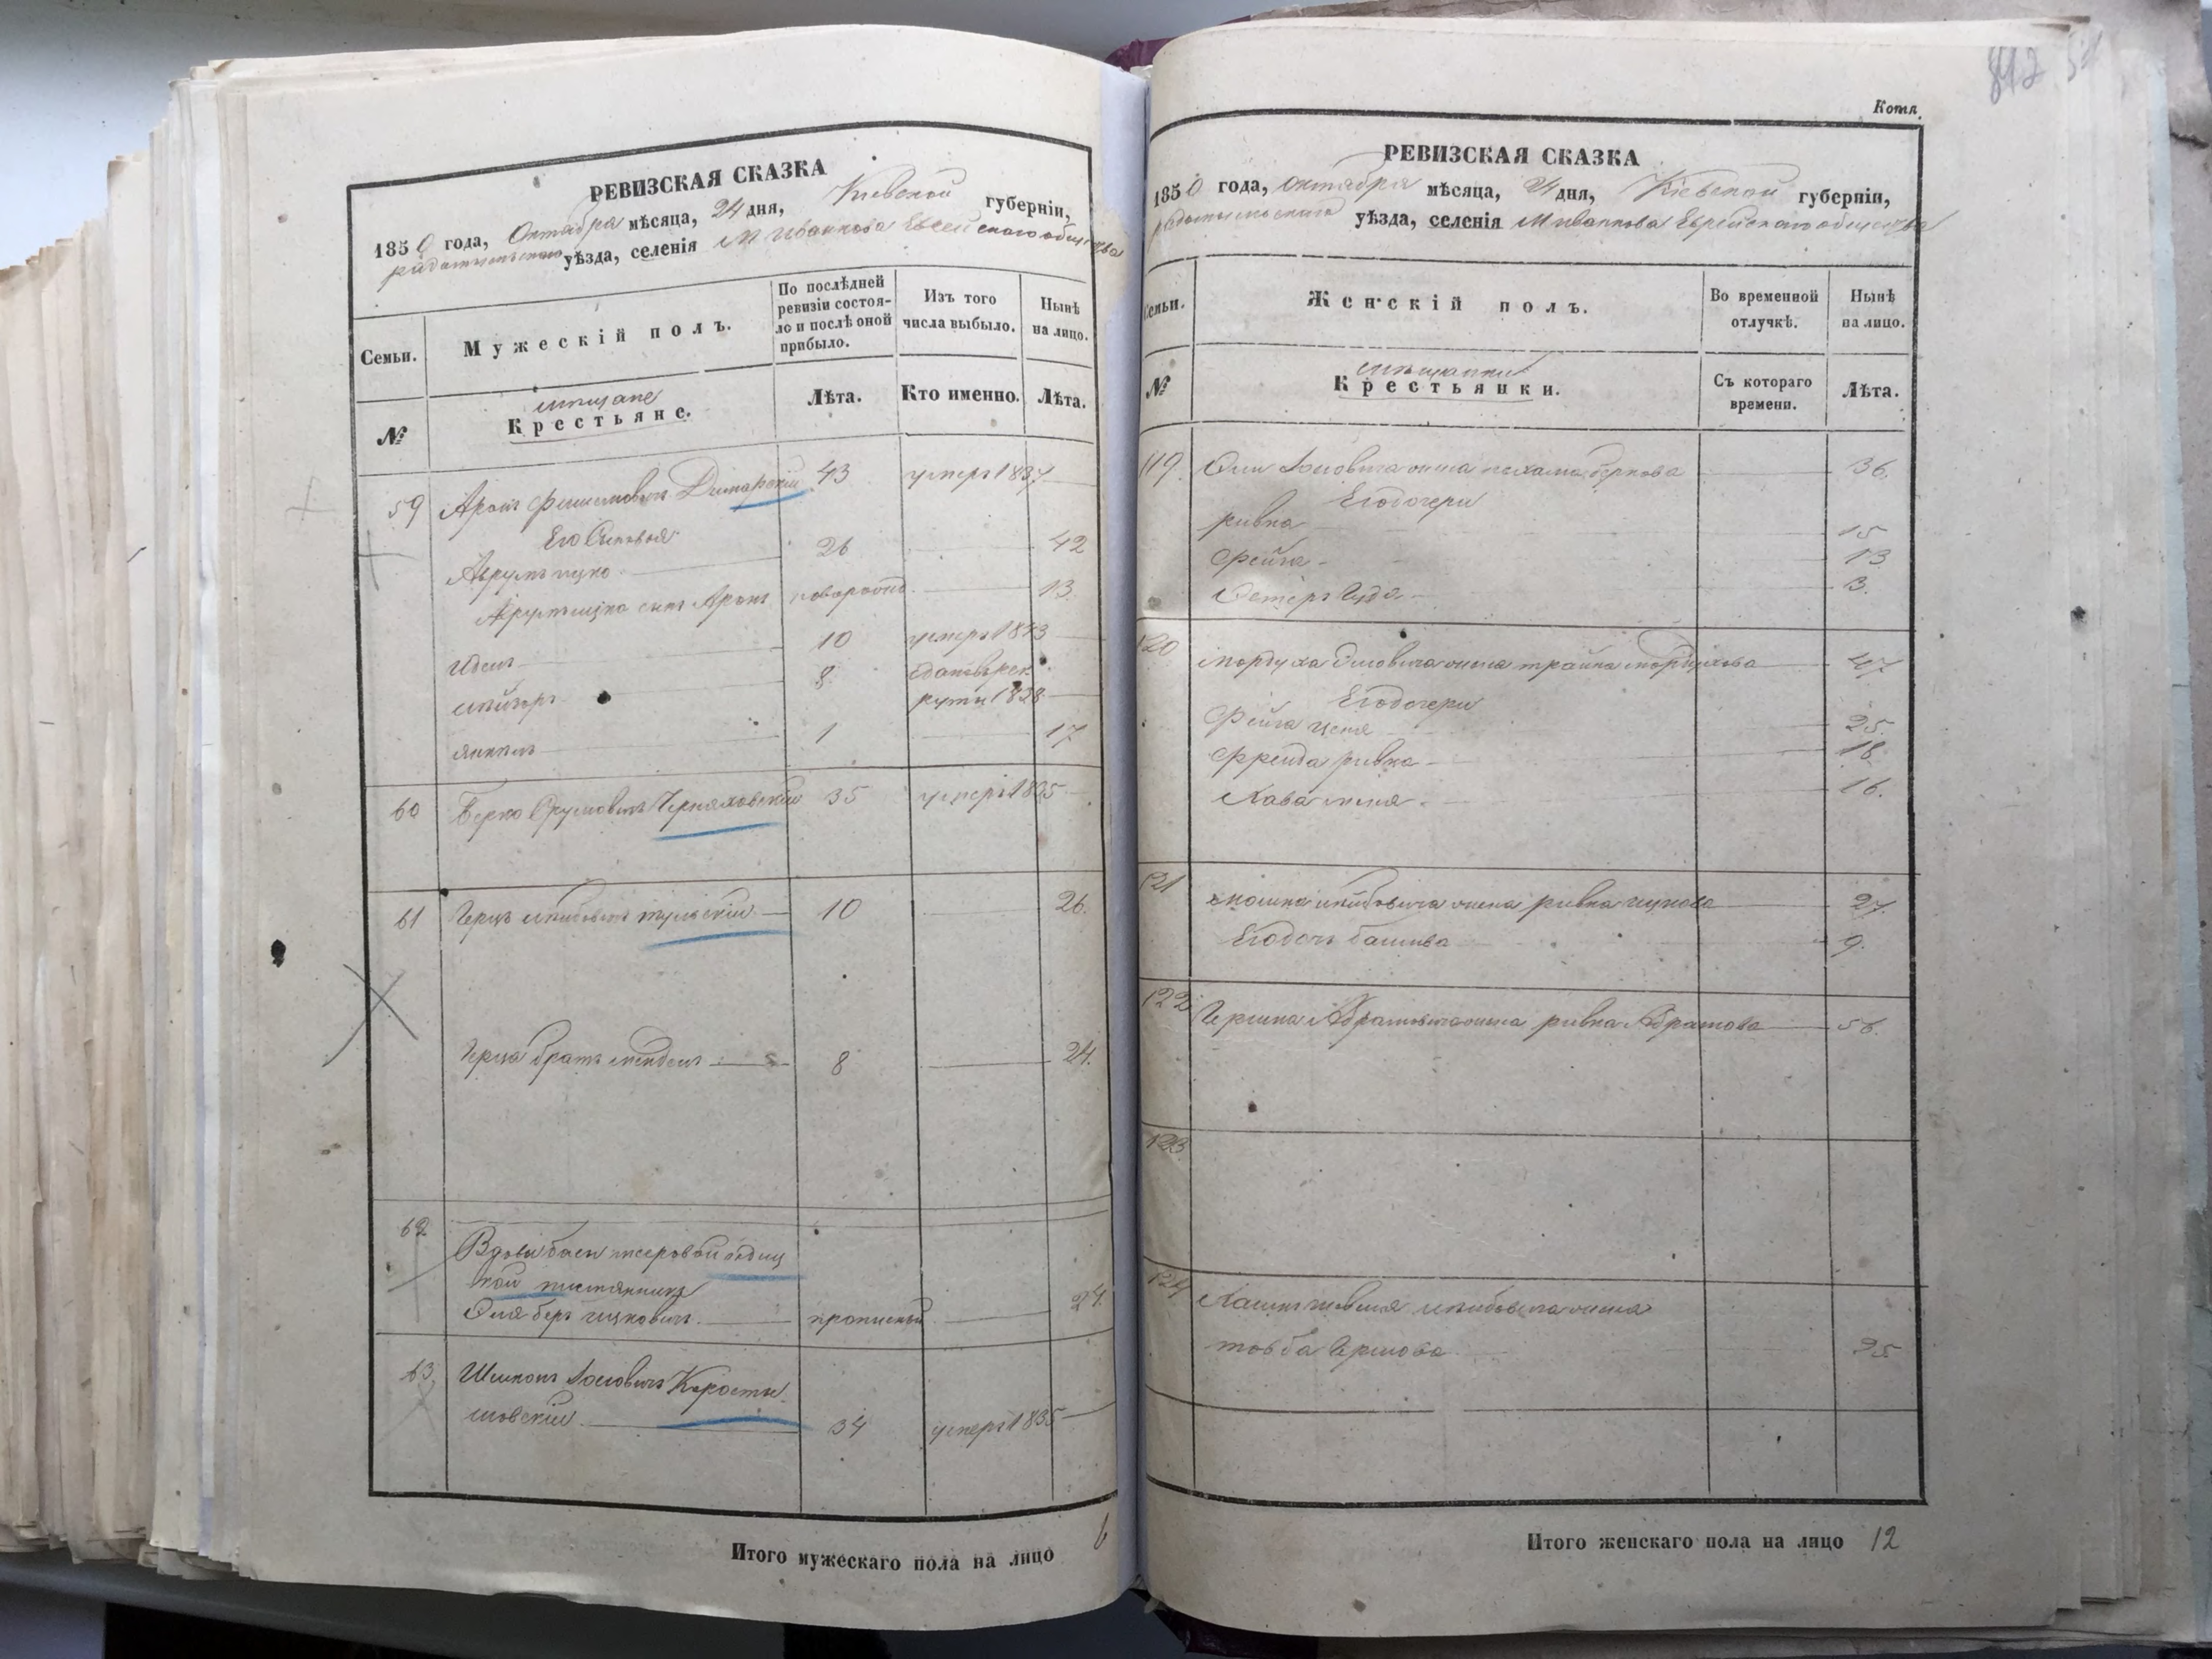 РЕВИЗСКАЯ СКАЗКА
1850 года, Октября мѣсяца, 24 дня, Кіевской губерніи,
радомысльского уѣзда, селенія М иванкова Еврейского общества
Семьи.
Мужескій полъ.
По послѣдней ревизіи состояло и послѣ оной прибыло.
Изъ того числа выбыло.
Нынѣ на лицо.
№
мещане
Крестьяне.
Лѣта.
Кто именно.
Лѣта.
59 Аронъ Фишелевичъ Дымарскій 43 умеръ 1837
Его Сыновья
Аврумъ ицко 26 42
Аврумъ ицка сынъ Аронъ новорожд 13
Идель 10 умеръ 1843
мейеръ 8 сданъ врек
руты 1838
янкель 1 17
60 Берко Срулевичъ Черняховскій 35 умеръ 1835
61 Герцъ лейбовичъ тульскій 10 26.
Герца братъ мендель 8 24.
62
Вдовы баси
Эля беръ ицковичъ. прописный 24.
63. Шлиомъ Іосіовичъ Коросты
шовскій 34 умеръ 1835
Итого мужескаго пола на лицо 6
842 54
Котл.
РЕВИЗСКАЯ СКАЗКА
1850 года, октября мѣсяца, 24 дня, Кіевской губерніи,
радомысльского уѣзда, селенія М иванкова Еврейского общества
Семьи.
Женскій полъ.
Во временной отлучкѣ.
Нынѣ на лицо.
№
мещанки
Крестьянки.
Съ котораго времени.
Лѣта.
119. Эли Іосіовича жена нехама беркова 36.
Его дочери
ривка 15
Фейга 13
Эстеръ Гудя 3.
120 мордуха Эліовича жена трайна мордухова 47
Его дочери
Фейга ценя 25.
Фрейда ривка 18.
Хава 16.
121 жена ривка ицкова 27.
Его дочь башива 9.
122 Гершка Абрамовича жена ривка Абрамова 56.
123.
124 лейбовича жена
товба Гершова 25
Итого женскаго пола на лицо 12